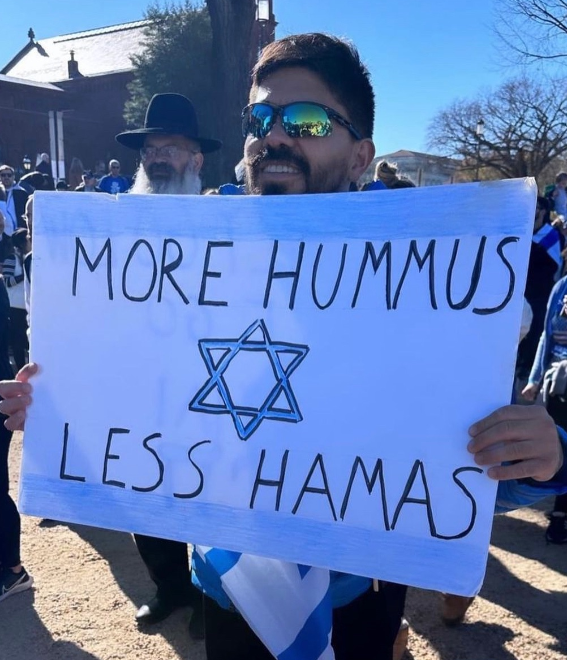 MORE HUMMUS
LESS HAMAS